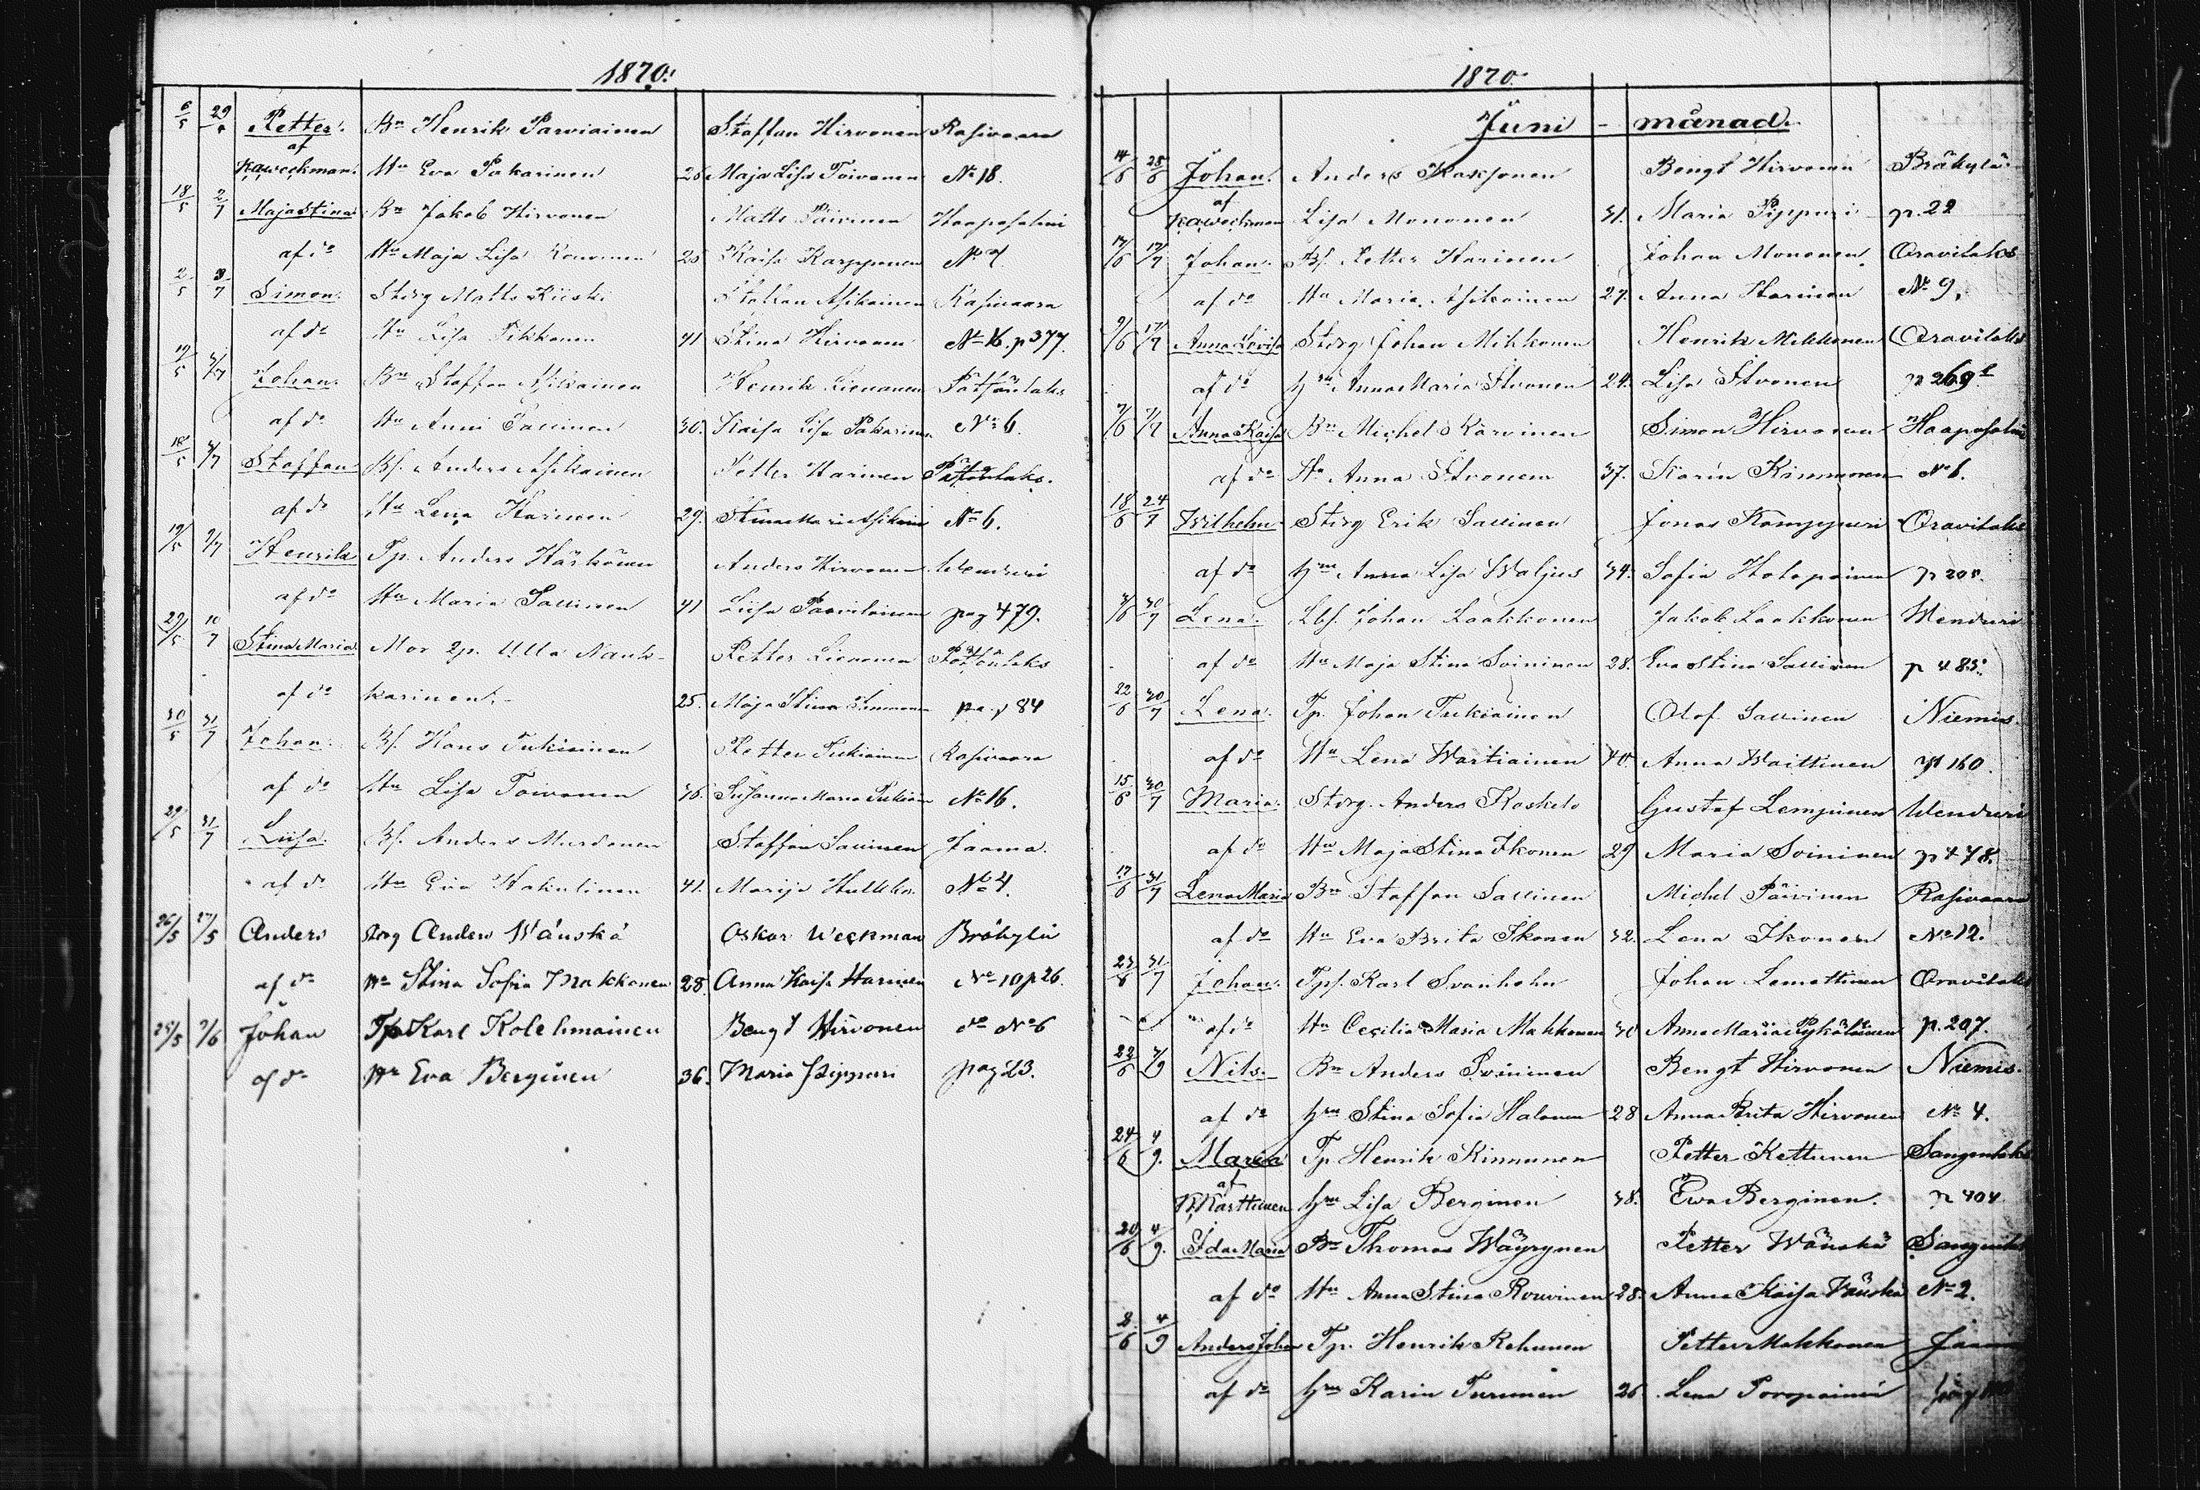 1870.
6/5 29/5 Petter. Bn Henrik Parviainen Staffan Hirvonen Rasivaara
af
Kaweckman. Hu Eva Pakarinen 26 Maja Lisa Toivonen No 18.
18/5 2/7 Maja Stina Bn Jakob Hirvonen Matts Päivinen Haaposalmi
af do Hu Maja Lisa 25 Kaisa Karppinen No 7.
2/5 3/7 Simon. Storg Matts Kiiski Asikainen Rasivaara
af do Hu Lisa Pikkonen 41 Stina Hirvonen No 16. p 377.
19/5 3/7 Johan. Bn Staffan Asikainen Henrik Lievonen
af do Hu Anni Sallinen 30. Kaisa Lisa Pakarinen No 6.
3/7 Staffan Bf. Anders Asikainen Petter Harinen
af do Hu Lena Harinen 29. Stina Maria Asikain No 6.
19/5 Henrik Tp. Anders Härkönen Anders Hirvonen Wenduri
af do Hu Maria Sallinen 41 Luisa pag 479.
29/5 10/7 Stina Maria Mor Ip. Ulla Nauk- Petter Lievonen
af do karinen. 25. Maja Stina pag 84
30/5 31/7 Johan Bf. Hans Tukiainen Petter Tukiainen Rasivaara
af do Hu Lisa Toivonen 36. Susanna Maria Tukiain No 16.
29/5 31/7 Luisa. Bf. Anders Murdonen Staffan Sallinen Jaama.
af do Hu Eva Hakulinen 41. Marija Hulkko. No 4.
26/5 27/5 Anders Storg Anders Wänskä Oskar Weckman Bråkylä
af do Hu Stina Sofia Makkonen 28. Anna Kaisa Harinen No 10 p 26.
25/5 7/6 Johan Tp Karl Kolehmainen Bengt Hirvonen do No 6
af do Hu Eva Berginen 36. Maria Pippuri pag 23.
1870.
Juni - månad.
14/6 28/6 Johan. Anders Kasjonen Bengt Hirvonen Bråkylä
af
Kaweckman Lisa Mononen 31. Maria Pippuri p. 22
17/6 17/7 Johan. Bf. Petter Harinen Johan Mononen. Oravilaks
af do Hu Maria Asikainen 27. Anna Harinen No 9.
9/6 17/7 Anna Lovisa Storg Johan Mikkonen Henrik Mikkonen Oravilaks
af do Hn Anna Maria Itvonen 24. Lisa Itvonen p 269
7/6 Anna Kaisa Bn Michel Kärvinen Simon Hirvonen Haaposalmi
af do Hu Anna Itvonen 37. Karin Kinnunen No 6.
18/6 24/7 Wilhelm Storg Erik Sallinen Jonas Kamppuri Oravilaks
af do Hn Anna Lisa Waljus 34. Sofia Holopainen
3/6 30/7 Lena. Lbf. Johan Laakkonen Jakob Laakkonen Wenduri
af do Hu Maja Stina Soininen 28. Eva Stina Sallinen p 483.
22/6 30/7 Lena. Tp. Johan Tukiainen Olof Sallinen Niemis.
af do Hu Lena Wartiainen 40. Anna Waittinen p 160.
15/6 30/7 Maria. Storg. Anders Koskelo Gustaf Lempinen Wenduri
af do Hu Maja Stina Ikonen 29 Maria Soininen p 478.
17/6 31/7 Lena Maria Bn Staffan Sallinen Michel Päivinen Rasivaara
af do Hu Eva Brita Ikonen 32. Lena Ikonen No 12.
23/6 31/7 Johan. Tpf. Karl Svanholm Johan Lomattinen Oravilaks
af do Hu Cecilia Maria Makkonen 30 Anna Maria Pykäläinen p. 207.
22/6 Nils. Bn Anders Soininen Bengt Hirvonen Niemis.
af do Hn Stina Sofia Halonen 28 Anna Brita Hirvonen No 4.
24/6 4/9. Maria Tp Henrik Kinnunen Petter Kettunen Sangenlaks
af
K. Karttunen Hn Lisa Berginen 38. Ewa Berginen. p 404
20/6 4/9. Ida Maria Bn Thomas Wäyrynen Petter Wänskä
af do Hu Anna Stina Rouvinen 28. Anna Kaisa Wänskä No 2.
2/6 4/9 Anders Johan Tp. Henrik Rehunen Petter Makkonen Jaama
af do Hn Karin Turunen 26. Lena Toropainen pag